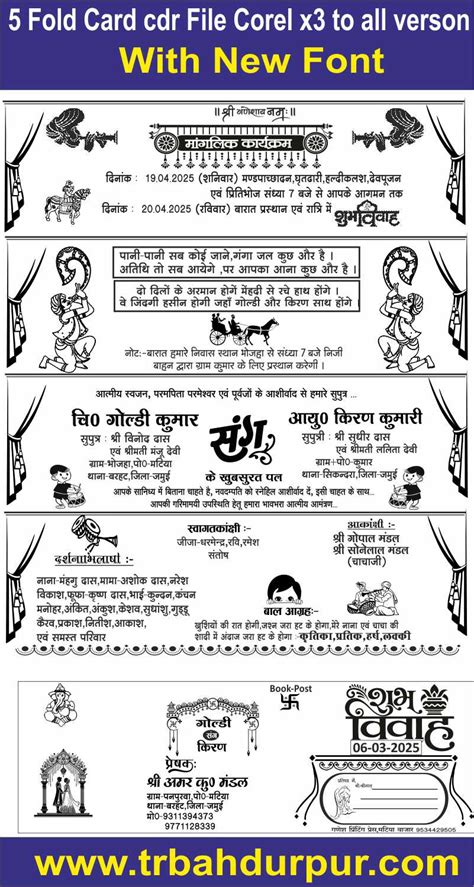 5 Fold Card cdr File Corel x3 to all verson
With New Font
॥ श्री गणेशाय नमः ॥
मांगलिक कार्यक्रम
दिनांक : 19.04.2025 (शनिवार) मण्डपाच्छादन,घृतढारी,हल्दीकलश,देवपूजन
एवं प्रितिभोज संध्या 7 बजे से आपके आगमन तक
दिनांक : 20.04.2025 (रविवार) बारात प्रस्थान एवं रात्रि में शुभविवाह
पानी-पानी सब कोई जाने,गंगा जल कुछ और है ।
अतिथि तो सब आयेगे ,पर आपका आना कुछ और है ।
दो दिलों के अरमान होगें मेंहदी से रचे हाथ होंगे ।
वे जिंदगी हसीन होगी जहाँ गोल्डी और किरण साथ होंगे ।
नोट:-बारात हमारे निवास स्थान भोजहा से संध्या 7 बजे निजी
बाहन द्वारा ग्राम कुमार के लिए प्रस्थान करेगी ।
आत्मीय स्वजन, परमपिता परमेश्वर एवं पूर्वजों के आशीर्वाद से हमारे सुपुत्र ...
चि0 गोल्डी कुमार
सुपुत्र : श्री विनोद दास
एवं श्रीमती मंजू देवी
ग्राम-भोजहा,पो0-मटिया
थाना-बरहट,जिला-जमुई
संग
के खुबसुरत पल
आयु0 किरण कुमारी
सुपुत्री : श्री सुधीर दास
एवं श्रीमती ललिता देवी
ग्राम+पो0-कुमार
थाना-सिकन्दरा,जिला-जमुई
आपके सानिध्य में बिताना चाहते है, नवदम्पति को स्नेहिल आशीर्वाद दें, इसी चाहत के साथ...
आपकी गरिमामयी उपस्थिति हेतू हमारा भावभरा आत्मीय आमंत्रण...
दर्शनाभिलाषी :
नाना-मंहगु दास,मामा-अशोक दास,नरेश
विकाश,फूफा-कृष्ण दास,भाई-कुन्दन,कंचन
मनोहर,अंकित,अंकुश,केशव,सुधांशु,गुड्डू
कैरव,प्रकाश,नितीश,आकाश,
एवं समस्त परिवार
स्वागतकांक्षी :-
जीजा-धरमेन्द्र,रवि,रमेश
संतोष
आकांक्षी :-
श्री गोपाल मंडल
श्री सोनेलाल मंडल
(चाचाजी)
बाल आग्रह:-
खुशियों की रात होगी,जश्न जरा हट के होगा,मेरे नाना एवं चाचा की
शादी में अंदाज जरा हट के होगा :- कृतिका,प्रतिक,हर्ष,लक्की
गोल्डी
संग
किरण
प्रेषक:-
श्री अमर कु0 मंडल
ग्राम-पनपुरवा,पो0-मटिया
थाना-बरहट,जिला-जमुई
मो0-9311394373
9771128339
Book-Post
शुभ
विवाह
06-03-2025
श्री/श्रीमान्
गणेश प्रिंटिंग प्रेस,मटिया बाजार 9534429505
www.trbahdurpur.com